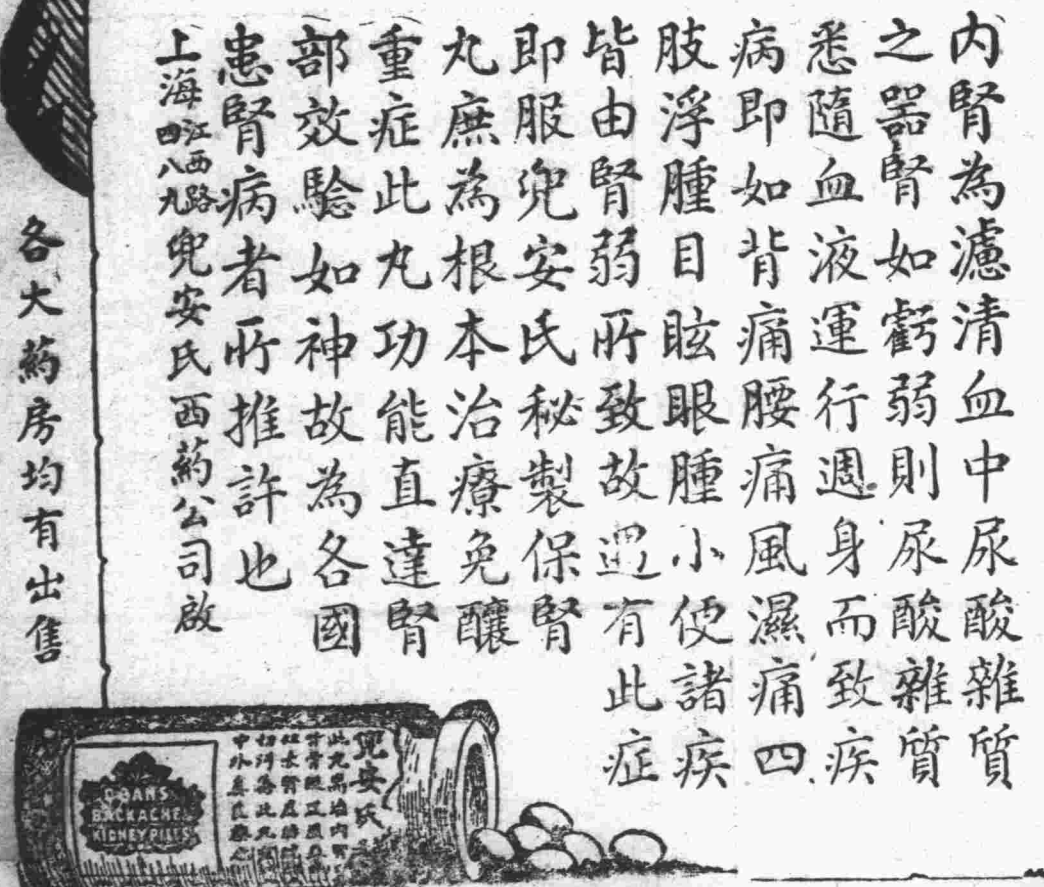 内腎為濾清血中尿酸雜質
之器腎如虧弱則尿酸雜質
悉隨血液運行週身而致疾
病即如背痛腰痛風濕痛四
肢浮腫目眩眼腫小便諸疾
皆由腎弱所致故遇有此症
即服兜安氏秘製保腎
丸庶為根本治療免釀
重症此丸功能直達腎
部效驗如神故為各國
患腎病者所推許也
上海江西路四八九兜安氏西葯公司啟
各大葯房均有出售
兜安氏
DOANS
BACKACHE
KIDNEY PILLS